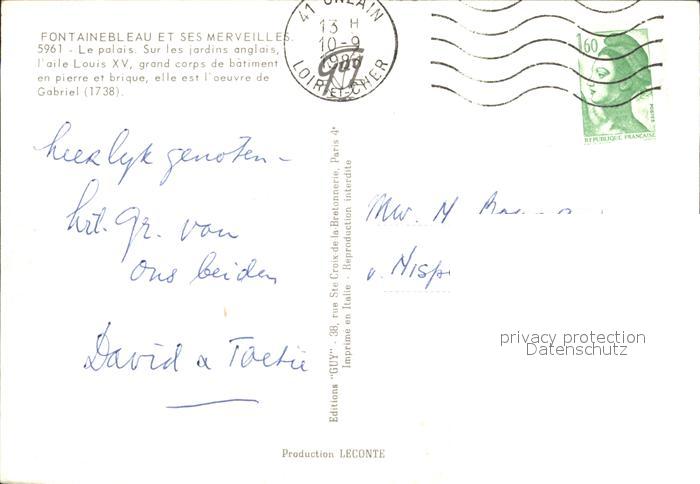 FONTAINEBLEAU ET SES MERVEILLES.
5961 - Le palais. Sur les jardins anglais,
l'aile Louis XV, grand corps de bâtiment
en pierre et brique, elle est l'oeuvre de
Gabriel (1738).
41 ONZAIN
13 H
10-9
LOIR-ET-CHER
Guy
1,60
POSTES
REPUBLIQUE FRANÇAISE
heerlyk genoten -
hrt. gr. van
ons beiden
David & Toetie
Editions "GUY" - 38, rue Ste Croix-de-la-Bretonnerie, Paris 4e
Imprimé en Italie - Reproduction interdite
Mw. H
v. Nisp
privacy protection
Datenschutz
Production LECONTE